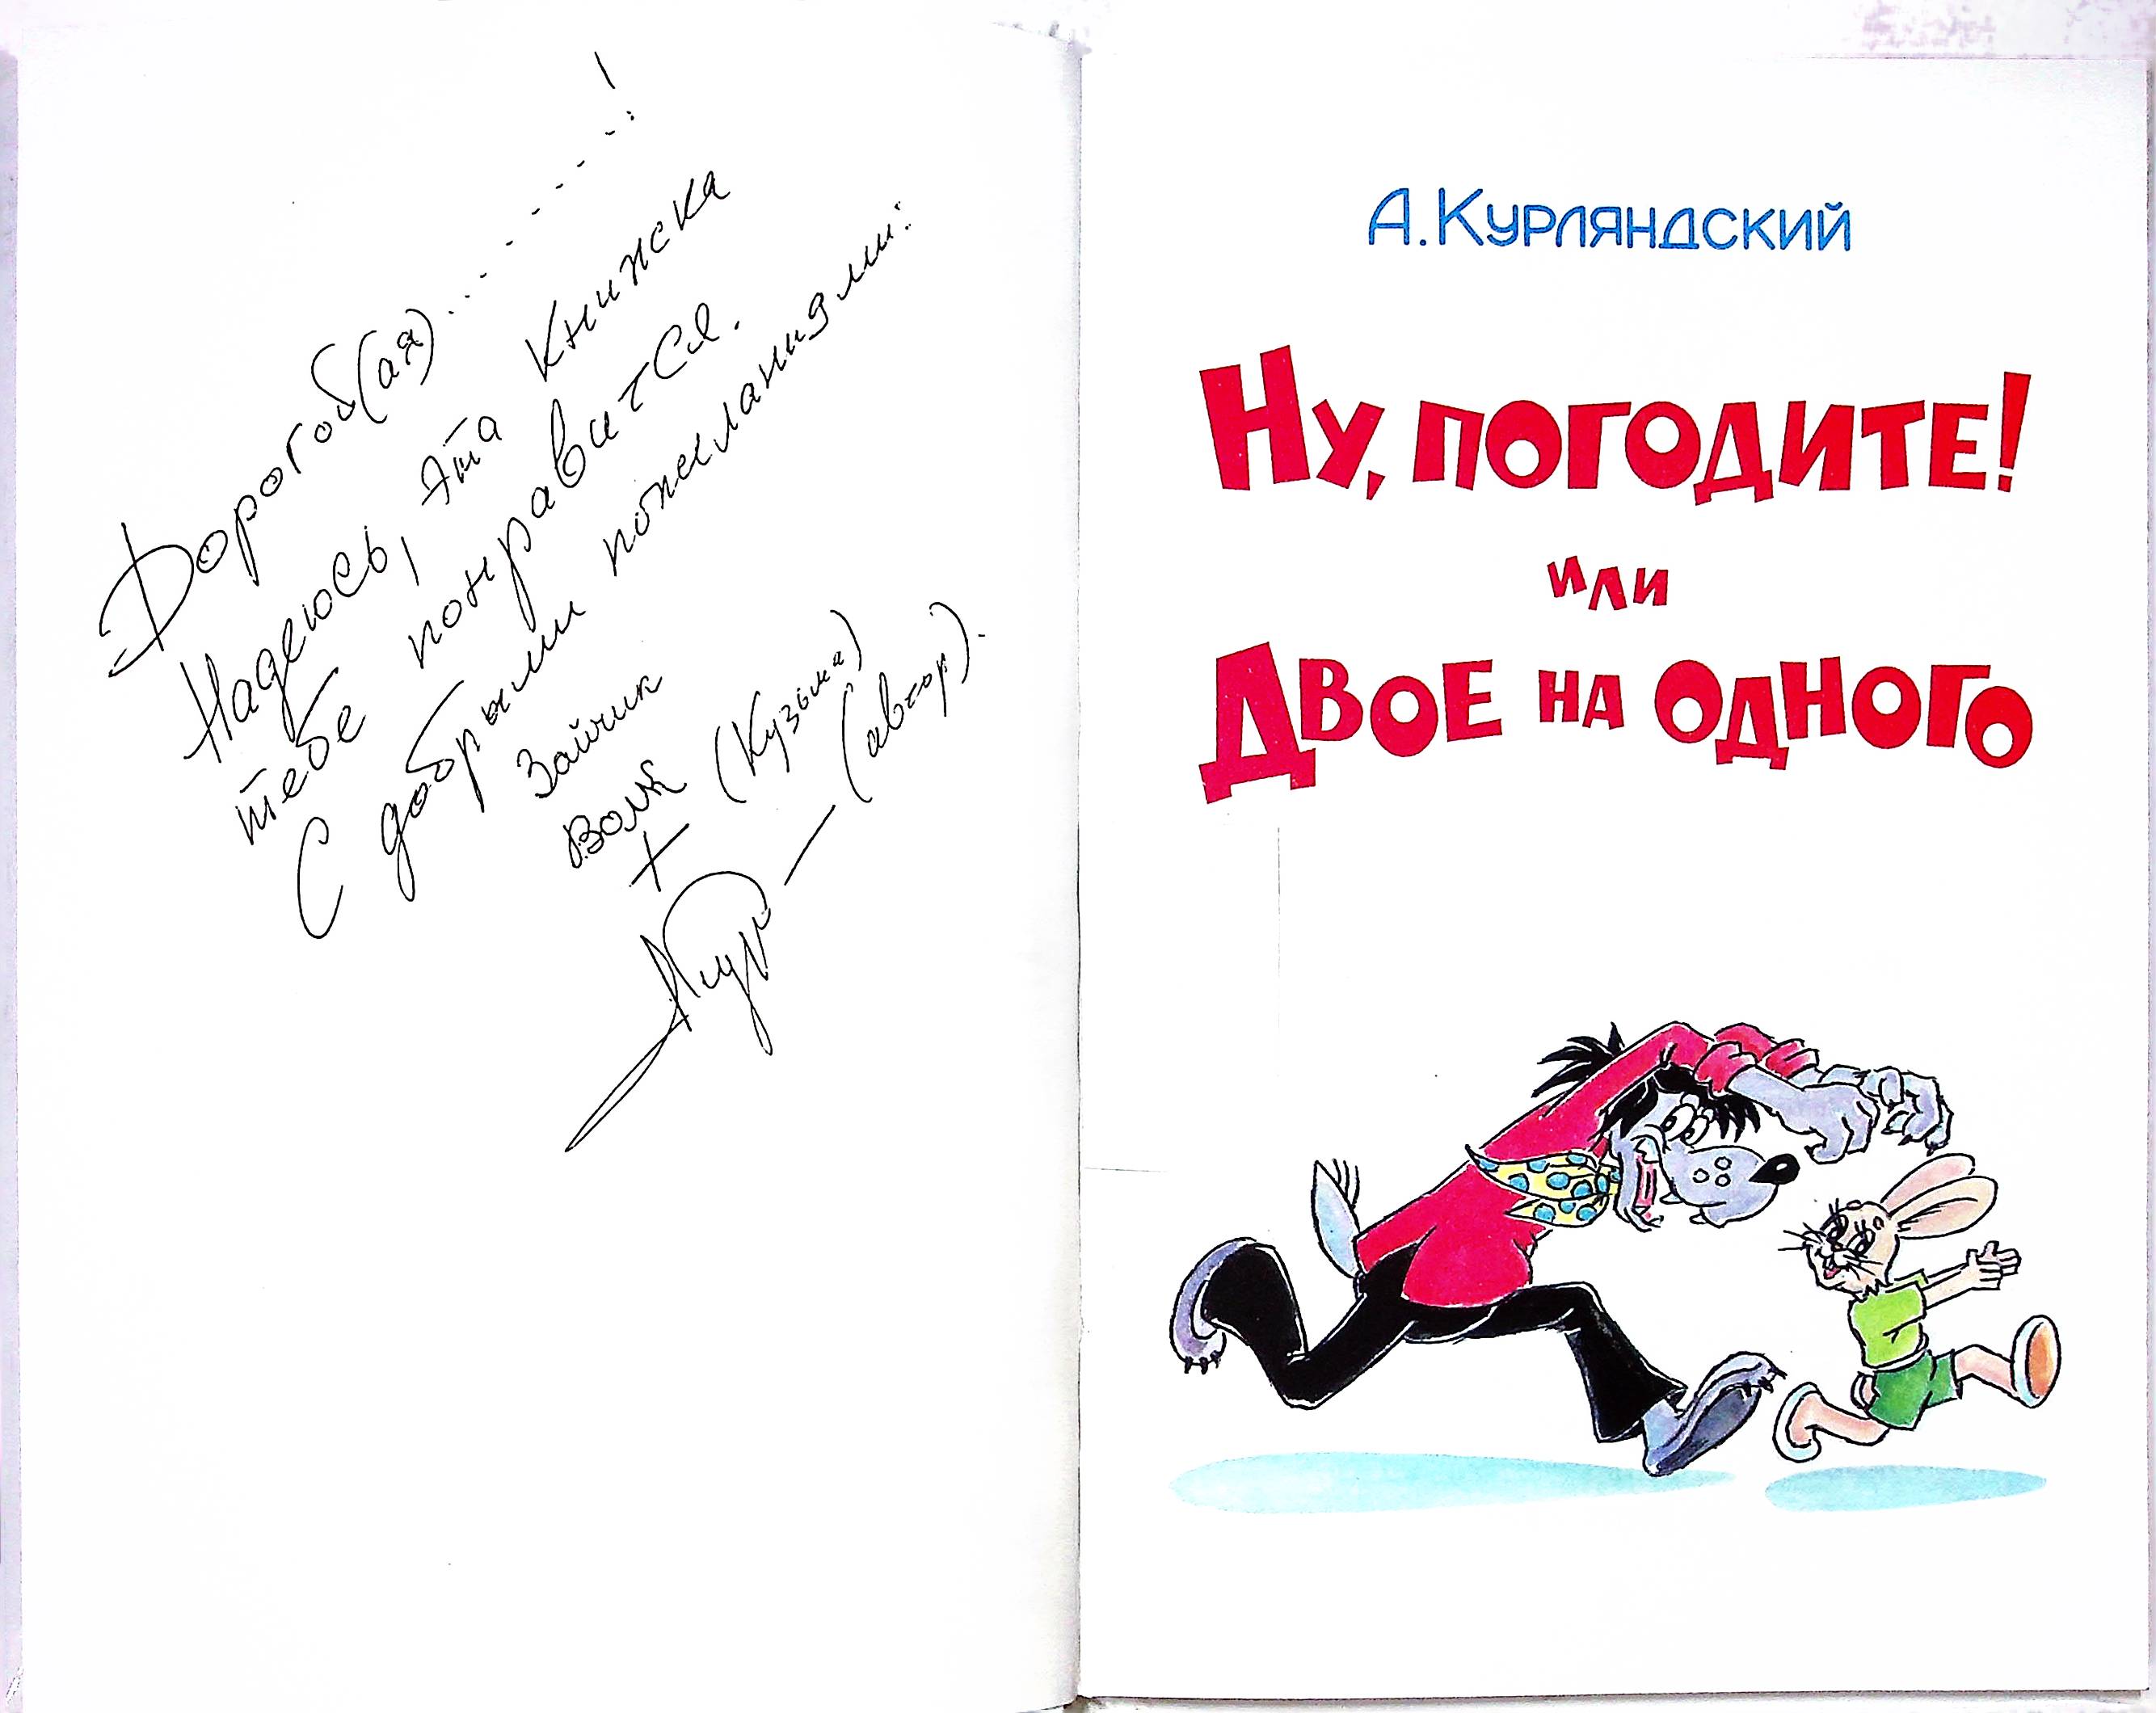 Дорогой(ая)..............!
Надеюсь, эта книжка
тебе понравится.
С добрыми пожеланиями:
Зайчик
Волк (Кузьма)
+
АКур — (автор).
А. Курляндский
Ну, погодите!
или
Двое на одного